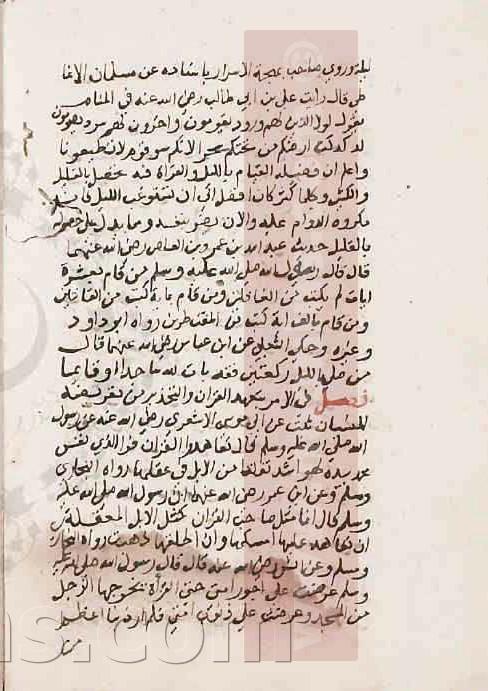 ليلة وروى صاحب بهجة الاسرار باسناده عن سلمان الانما
طى قال رايت على بن ابي طالب رضى الله عنه فى المنام
يقول لولا الذين لهم ورد يقومون وآخرون لهم سرد يصومون
لدكدكت ارضكم من تحتكم سحرا لانكم قوم سو لا تطيعونا
واعلم ان فضيلة القيام بالليل والقراة فيه تحصل بالقليل
والكثير وكلما كثر كان افضل الا ان يستوعب الليل كله فانه
مكروه الدوام عليه والا ان يضر بنفسه ومما يدل على حصوله
بالقليل حديث عبد الله بن عمرو بن العاص رضى الله عنهما
قال قال رسول الله صلى الله عليه وسلم من قام بعشرة
ايات لم يكتب من الغافلين ومن قام بماية كتب من القانتين
ومن قام بالف اية كتب من المقنطرين رواه ابو داود
وغيره وحكى الثعلبى عن ابن عباس رضى الله عنهما قال
من صلى بالليل ركعتين فقد بات لله ساجدا وقايما
فصل فى الامر بتعهد القران والتحذير من تعريضه
للنسيان ثبت عن ابى موسى الاشعرى رضى الله عنه عن رسول
الله صلى الله عليه وسلم قال تعاهدوا القران فوالذى نفس
محمد بيده لهو اشد تفلتا من الابل فى عقلها رواه البخارى
ومسلم وعن ابن عمر رضى الله عنهما ان رسول الله صلى الله عليه
وسلم قال انما مثل صاحب القران كمثل الابل المعقلة
ان عاهد عليها امسكها وان اطلقها ذهبت رواه البخارى
ومسلم وعن انس رضى الله عنه قال قال رسول الله صلى الله عليه
وسلم عرضت على اجور امتى حتى القذاة يخرجها الرجل
من المسجد وعرضت على ذنوب امتى فلم ار ذنبا اعظم
من
ns.com